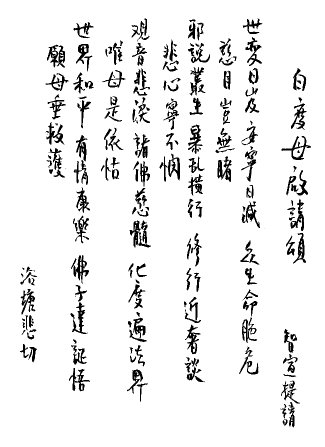 白度母啟請頌
智宣提請
世變日岌 安寧日減 众生命脆危
慈目豈無睹
邪說叢生 暴亂橫行 修行近奢談
悲心寧不憫
观音悲淚 諸佛慈髓 化度遍法界
唯母是依怙
世界和平 有情康樂 佛子達証悟
願母垂救護
洛塘悲切